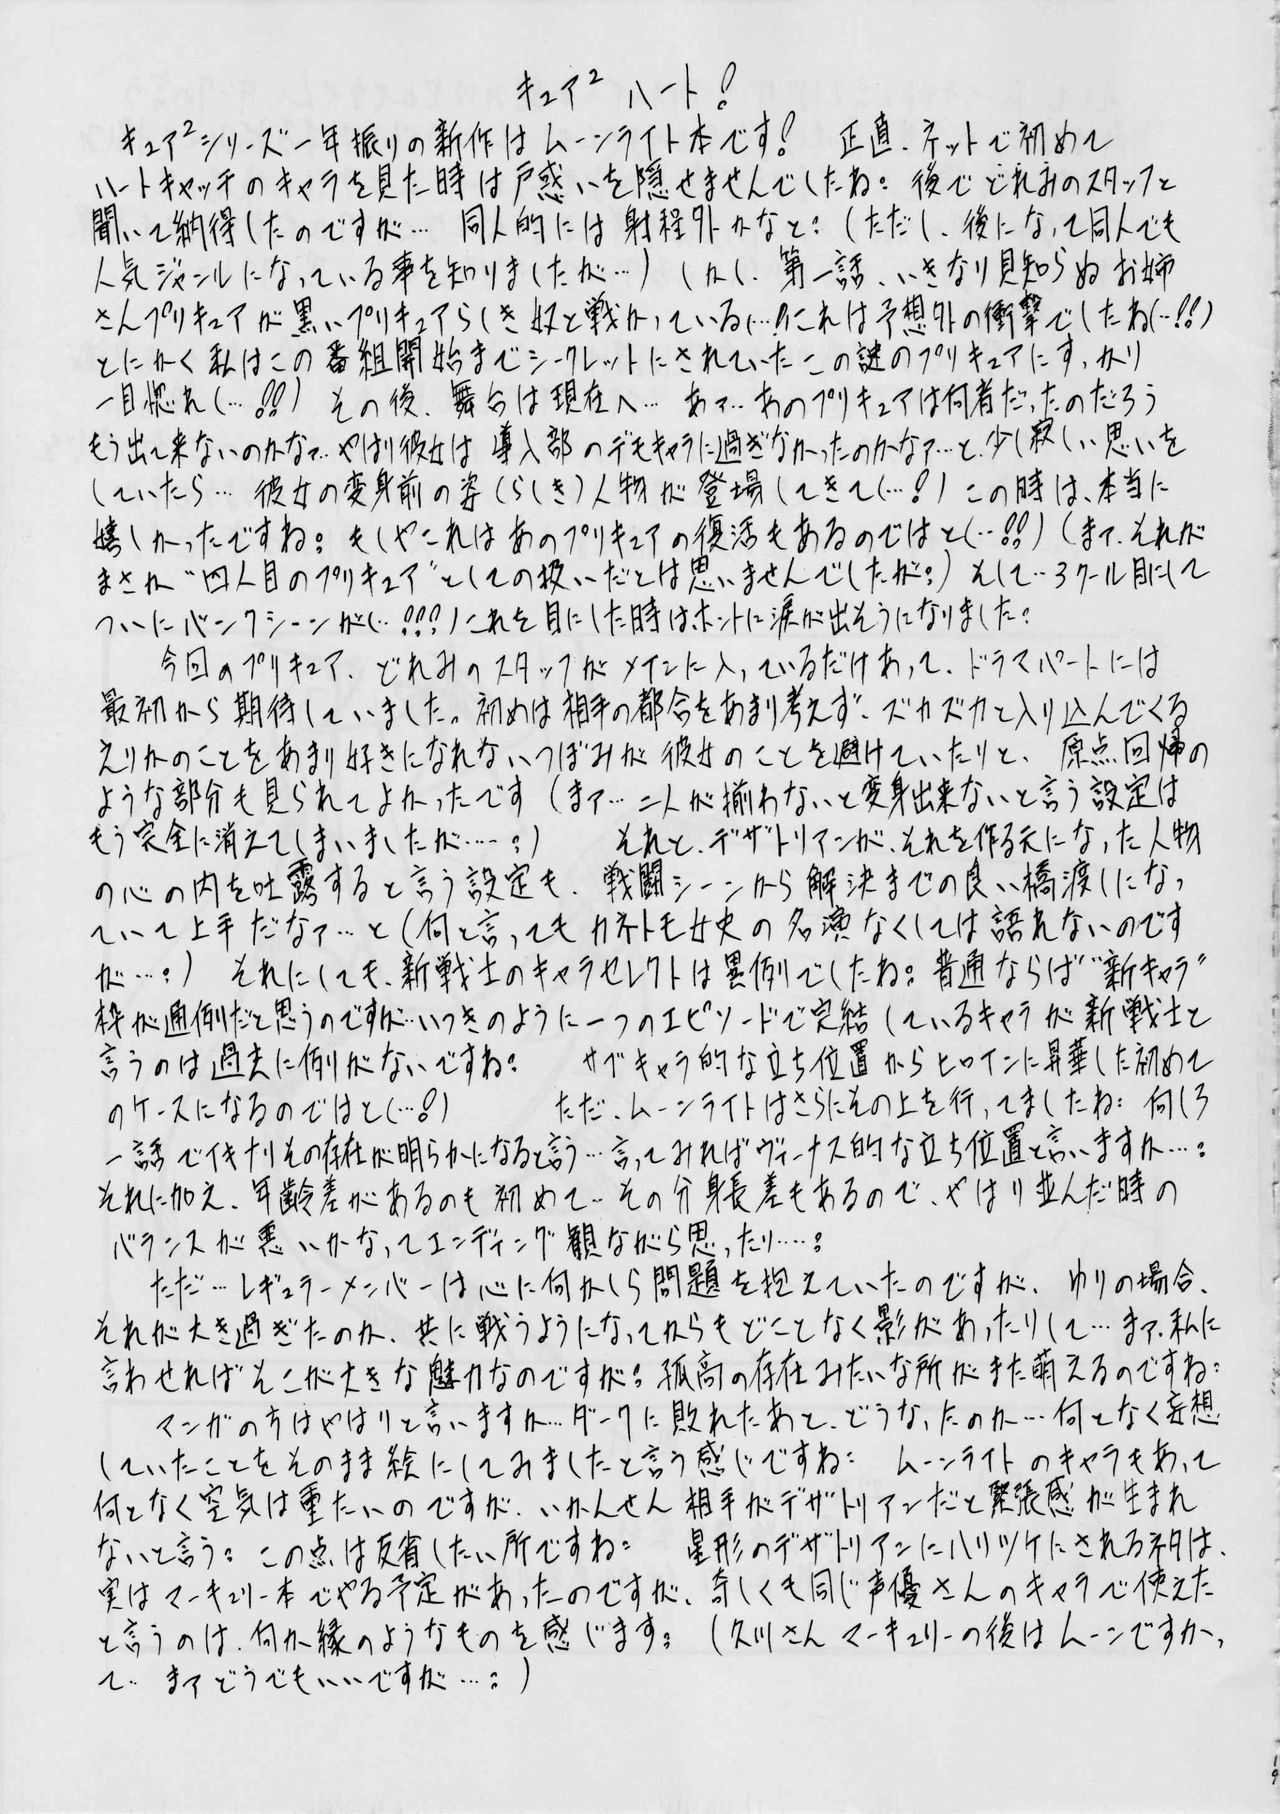 キュア² ハート!
キュア²シリーズ一年振りの新作はムーンライト本です! 正直、ネットで初めて
ハートキャッチのキャラを見た時は戸惑いを隠せませんでしたね: 後でどれみのスタッフと
聞いて納得したのですが… 同人的には射程外かなと: (ただし、後になって同人でも
人気ジャンルになっている事を知りましたが…) しかし、第一話、いきなり見知らぬお姉
さんプリキュアが黒いプリキュアらしき奴と戦かっている(…!)これは予想外の衝撃でしたね(…!!)
とにかく私はこの番組開始までシークレットにされていたこの謎のプリキュアにすっかり
一目惚れ(…!!) その後、舞台は現在へ… あァ…あのプリキュアは何者だったのだろう
もう出て来ないのかなァ…やはり彼女は導入部のデモキャラに過ぎなかったのかなァ…と、少し寂しい思いを
していたら… 彼女の変身前の姿(らしき)人物が登場してきて(…!) この時は、本当に
嬉しかったですね: もしやこれはあのプリキュアの復活もあるのではと(…!!) (まァ、それが
まさか“四人目のプリキュア”としての扱いだとは思いませんでしたが:) そして…3クール目にして
ついにバンクシーンが(…!!!)これを目にした時は、ホントに涙が出そうになりました:
今回のプリキュア、どれみのスタッフがメインに入っているだけあって、ドラマパートには
最初から期待していました。初めは相手の都合をあまり考えず、ズカズカと入り込んでくる
えりかのことをあまり好きになれないつぼみが彼女のことを避けていたりと、原点回帰の
ような部分も見られてよかったです(まァ…二人が揃わないと変身出来ないと言う設定は
もう完全に消えてしまいましたが……:) それと、デザトリアンが、それを作る元になった人物
の心の内を吐露すると言う設定も、戦闘シーンから解決までの良い橋渡しになっ
ていて上手だなァ…と(何と言ってもカネトモ女史の名演なくしては語れないのです
が…:) それにしても、新戦士のキャラセレクトは異例でしたね: 普通ならば“新キャラ”
枠が通例だと思うのですが…いつきのように一つのエピソードで完結しているキャラが新戦士と
言うのは過去に例がないですね: サブキャラ的な立ち位置からヒロインに昇華した初めて
のケースになるのではと(…!) ただ、ムーンライトはさらにその上を行ってましたね: 何しろ
一話でイキナリその存在が明らかになると言う…言ってみればヴィーナス的な立ち位置と言いますか…:
それに加え、年齢差があるのも初めて…その分身長差もあるので、やはり並んだ時の
バランスが悪いかなってエンディング観ながら思ったり……:
ただ…レギュラーメンバーは心に何かしら問題を抱えていたのですが、ゆりの場合、
それが大き過ぎたのか、共に戦うようになってからもどことなく影があったりして…まァ、私に
言わせればそこが大きな魅力なのですが: 孤高の存在みたいな所がまた萌えるのですね:
マンガの方はやはりと言いますか…ダークに敗れたあと、どうなったのか…何となく妄想
していたことをそのまま絵にしてみましたと言う感じですね: ムーンライトのキャラもあって
何となく空気は重たいのですが、いかんせん相手がデザトリアンだと緊張感が生まれ
ないと言う: この点は反省したい所ですね: 星形のデザトリアンにハリツケにされるネタは、
実はマーキュリー本でやる予定があったのですが、奇しくも同じ声優さんのキャラで使えた
と言うのは、何か縁のようなものを感じます: (久川さんマーキュリーの後はムーンですかっ
て… まァどうでもいいですが…:)
19